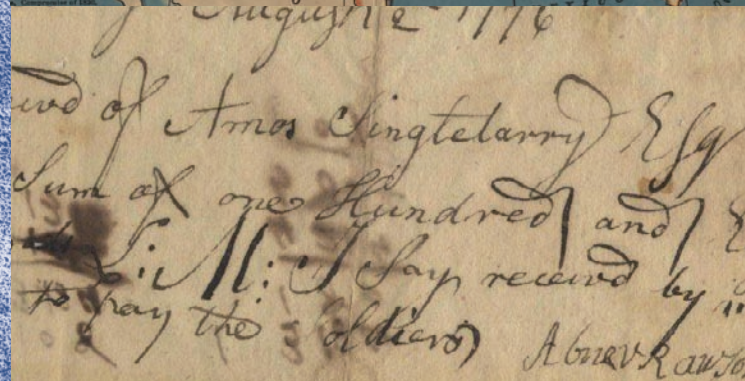 Compromise of 1850
August 2 1776
ivd of Amos Singletarry Esq
Sum of one Hundred and
L: M: I Say receivd by
to pay the Soldiers Abner Rawson